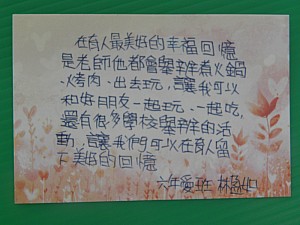 在育人最美好的幸福回憶
是老師他都會舉辦煮火鍋
、烤肉、出去玩,讓我可以
和好朋友一起玩、一起吃,
還有很多學校舉辦的活
動,讓我們可以在育人留
下美好的回憶
六年愛班 林